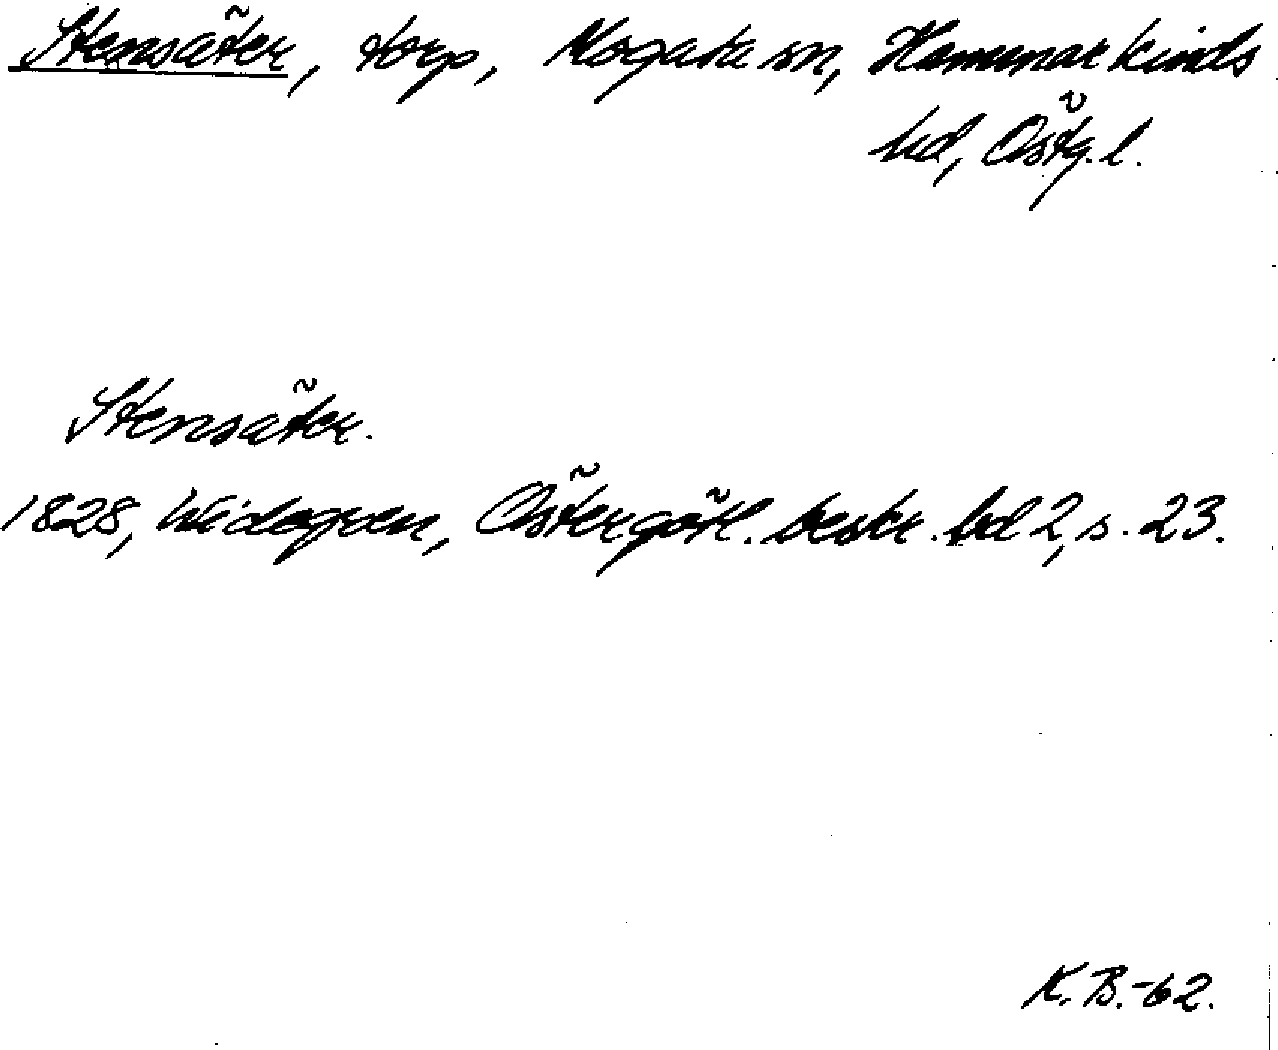 Stensäter, torp, Mogata sn, Hammarkinds
hd, Östg. l.
Stensäter.
1828, Widegren, Östergötl. beskr. bd 2, s. 23.
K. B. -62.